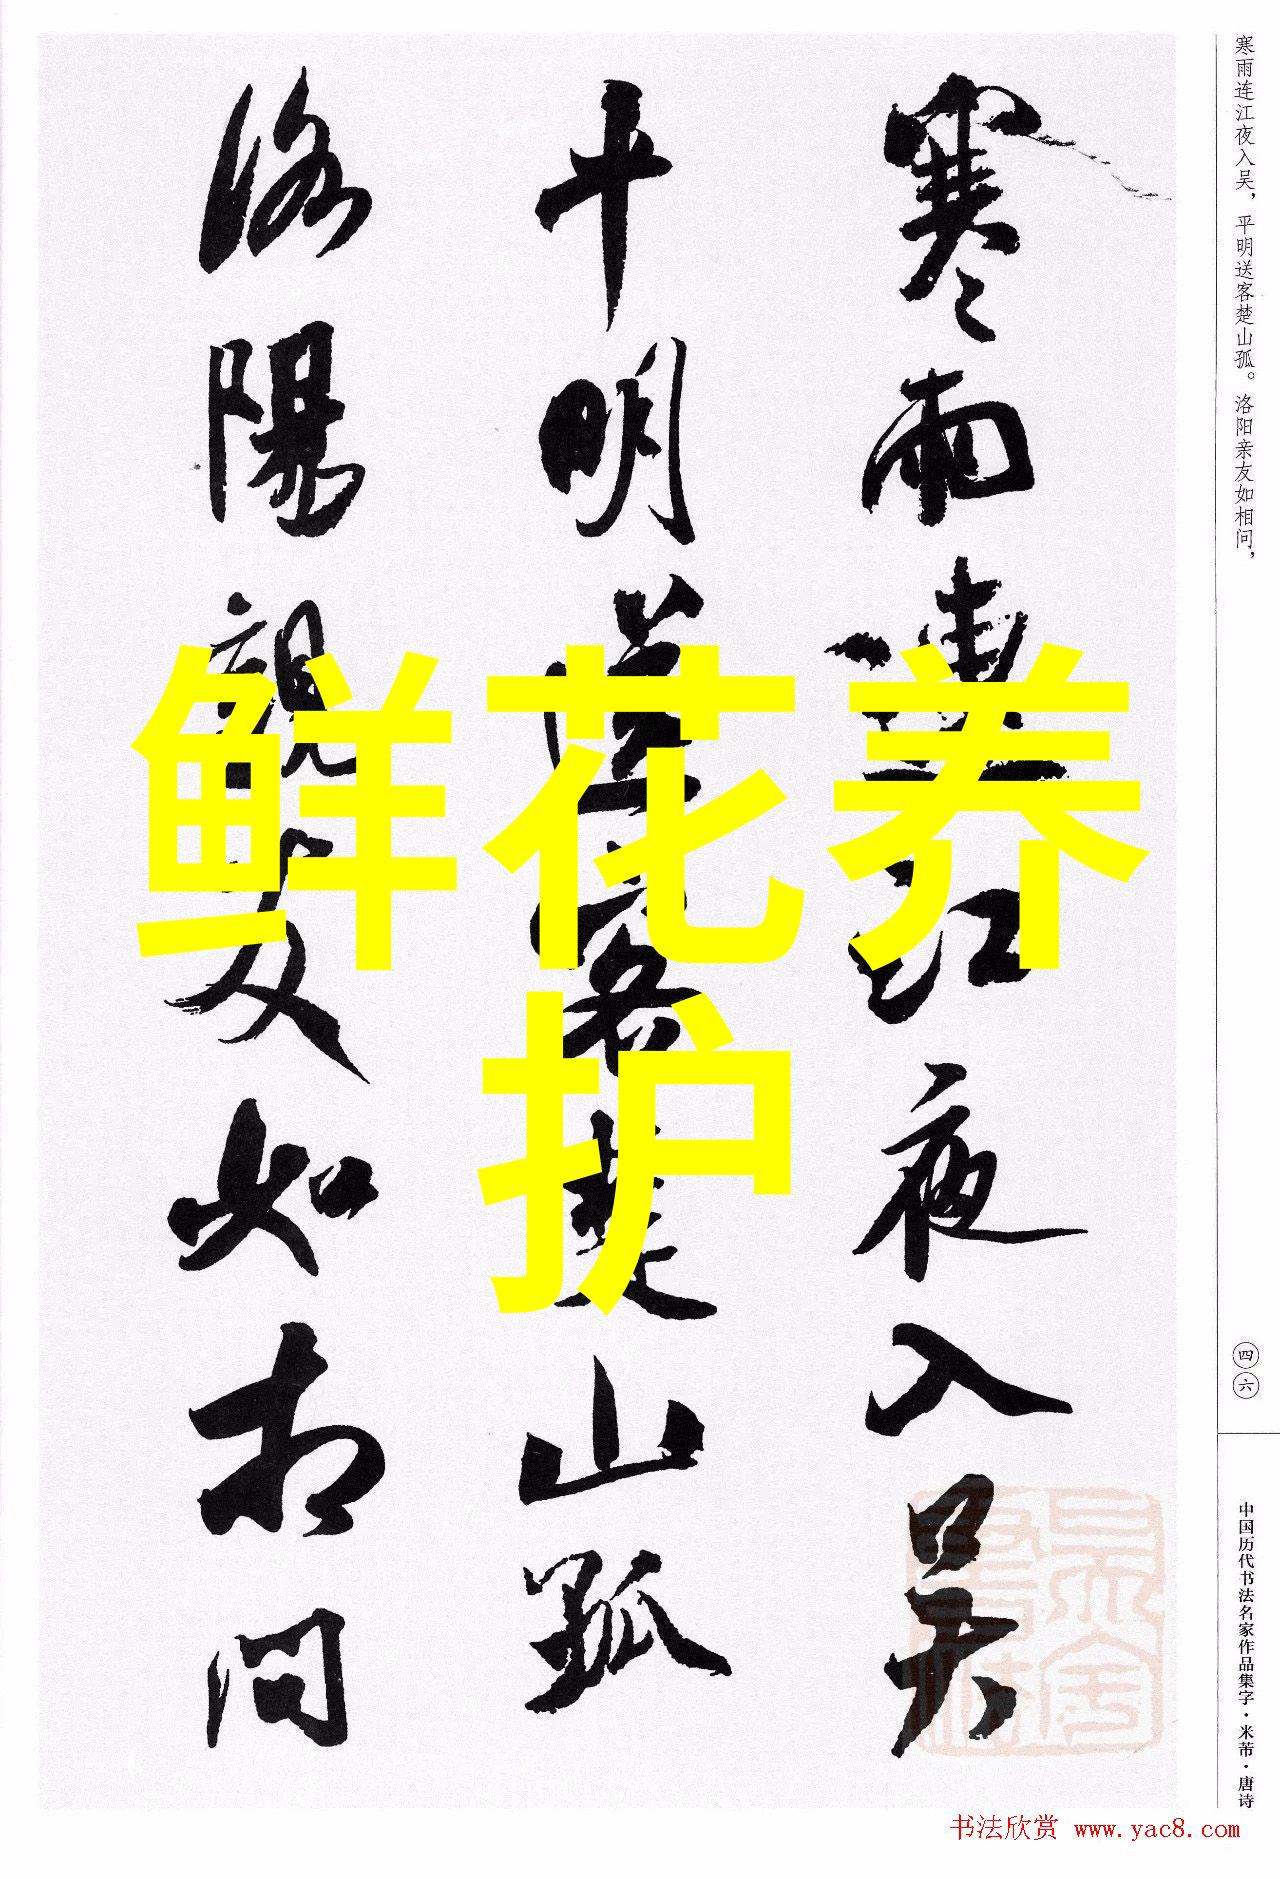 寒雨连江夜入吴，平明送客楚山孤。洛阳亲友如相问，
四六
中国历代书法名家作品集字·米芾·唐诗
寒雨連江夜入吴
平明送客楚山孤
洛陽親友如相问
鲜花养
护
书法欣赏 www.yac8.com